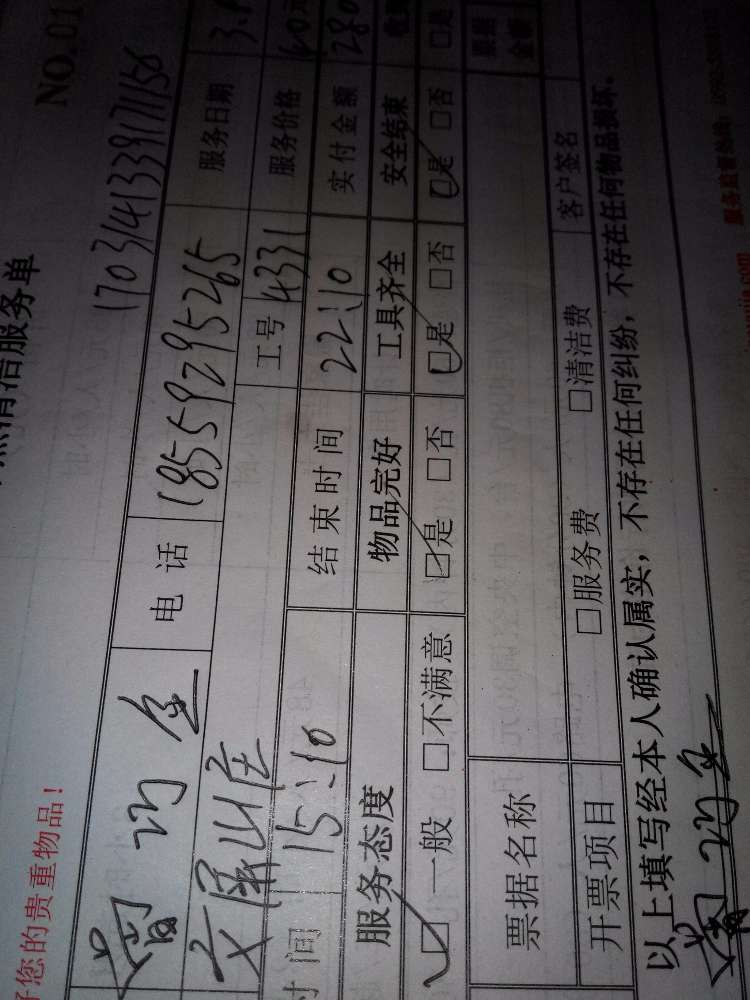 清洁服务单
NO.01
好您的贵重物品！
1703141339171156
电话 18559295265 服务日期 3.
文屏山庄 工号 4331 服务价格 60
时间 15:10 结束时间 22:10 实付金额 280
服务态度 物品完好 工具齐全 安全结束
☑一般 □不满意 ☑是 □否 ☑是 □否 ☑是 □否 □是
票据名称
开票项目 □服务费 □清洁费 客户签名
以上填写经本人确认属实，不存在任何纠纷，不存在任何物品损坏。